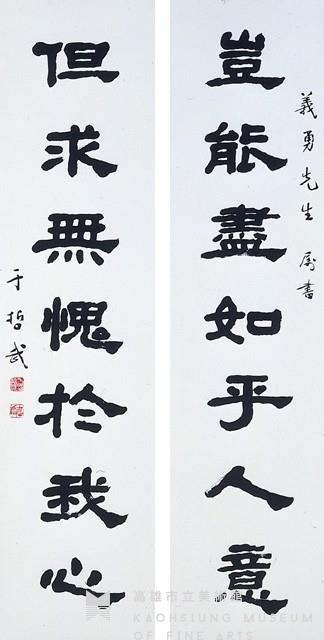 義勇先生 屬書
豈能盡如乎人意
但求無愧於我心
于哲武
高雄市立美術館
KAOHSIUNG MUSEUM
OF FINE ARTS